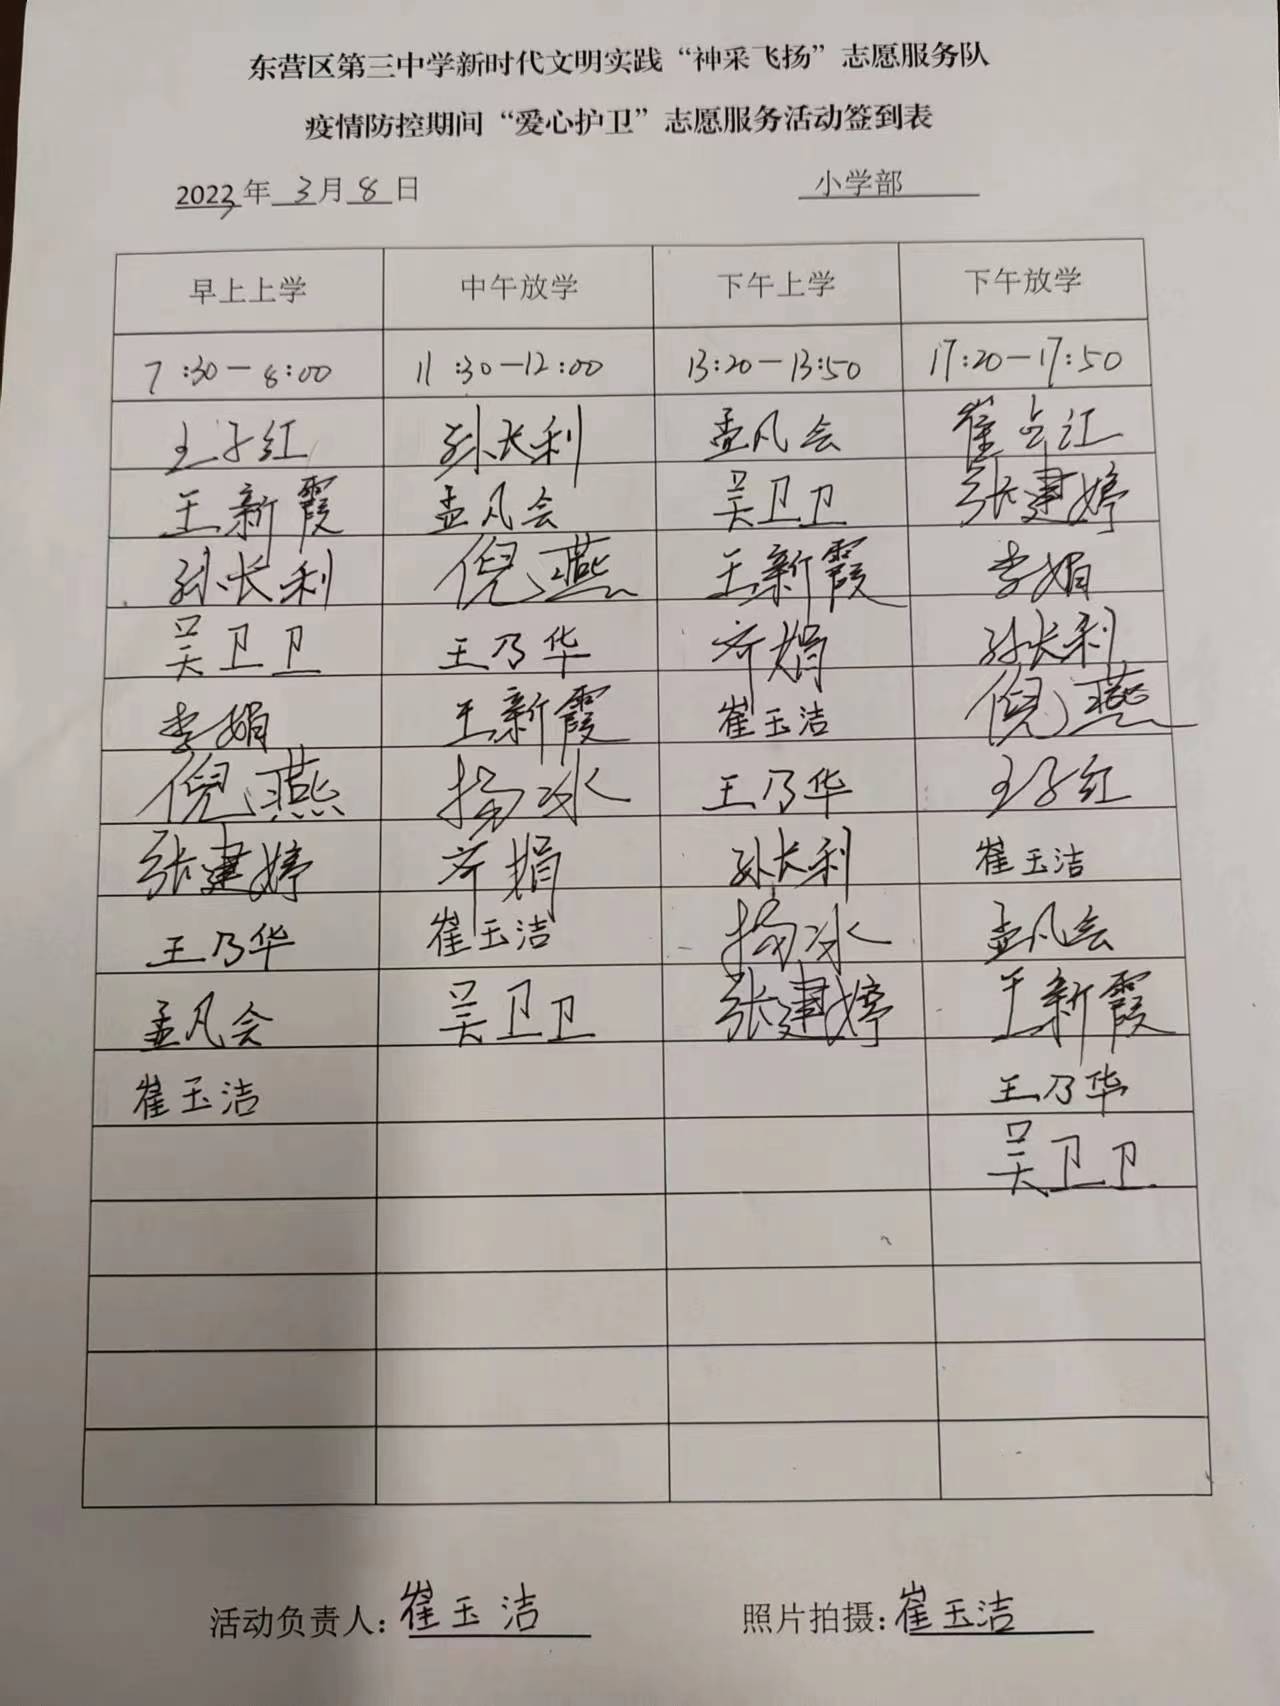 东营区第三中学新时代文明实践“神采飞扬”志愿服务队
疫情防控期间“爱心护卫”志愿服务活动签到表
2023年 3月 8日 小学部
早上上学 中午放学 下午上学 下午放学
7:30-8:00 11:30-12:00 13:20-13:50 17:20-17:50
王子红 孙长利 孟凡会 崔占江
王新霞 孟凡会 吴卫卫 张建婷
孙长利 倪燕 王新霞 李娟
吴卫卫 王乃华 齐娟 孙长利
李娟 王新霞 崔玉洁 倪燕
倪燕 杨冰 王乃华 王子红
张建婷 齐娟 孙长利 崔玉洁
王乃华 崔玉洁 杨冰 孟凡会
孟凡会 吴卫卫 张建婷 王新霞
崔玉洁 王乃华
吴卫卫
活动负责人:崔玉洁 照片拍摄:崔玉洁